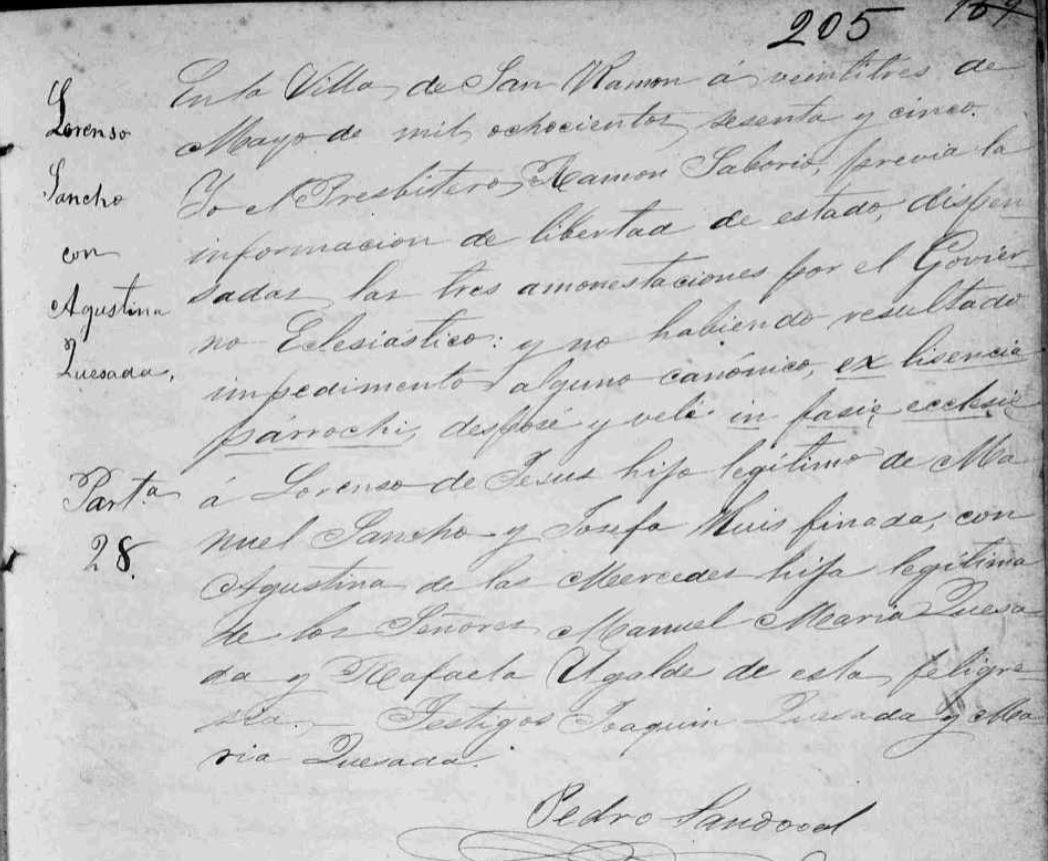 205 169
Lorenso
Sancho
con
Agustina
Quesada,
Part.a
28.
En la Villa de San Ramon á veintitres de
Mayo de mil ochocientos sesenta y cinco.
Yo el Presbitero Ramon Saborio, previa la
informacion de libertad de estado, dispen
sadas las tres amonestaciones por el Govier
no Eclesiástico: y no habiendo resultado
impedimento alguno canónico, ex lisencia
párrochi, desposé y velé in fasie ecclesie
á Lorenso de Jesus hijo legítimo de Ma
nuel Sancho y Josefa Ruis finada, con
Agustina de las Mercedes hija legítima
de los Señores Manuel Maria Quesa
da y Rafaela Ugalde de esta feligre
sia. Testigos Joaquin Quesada y Ma
ria Quesada.
Pedro Sandoval